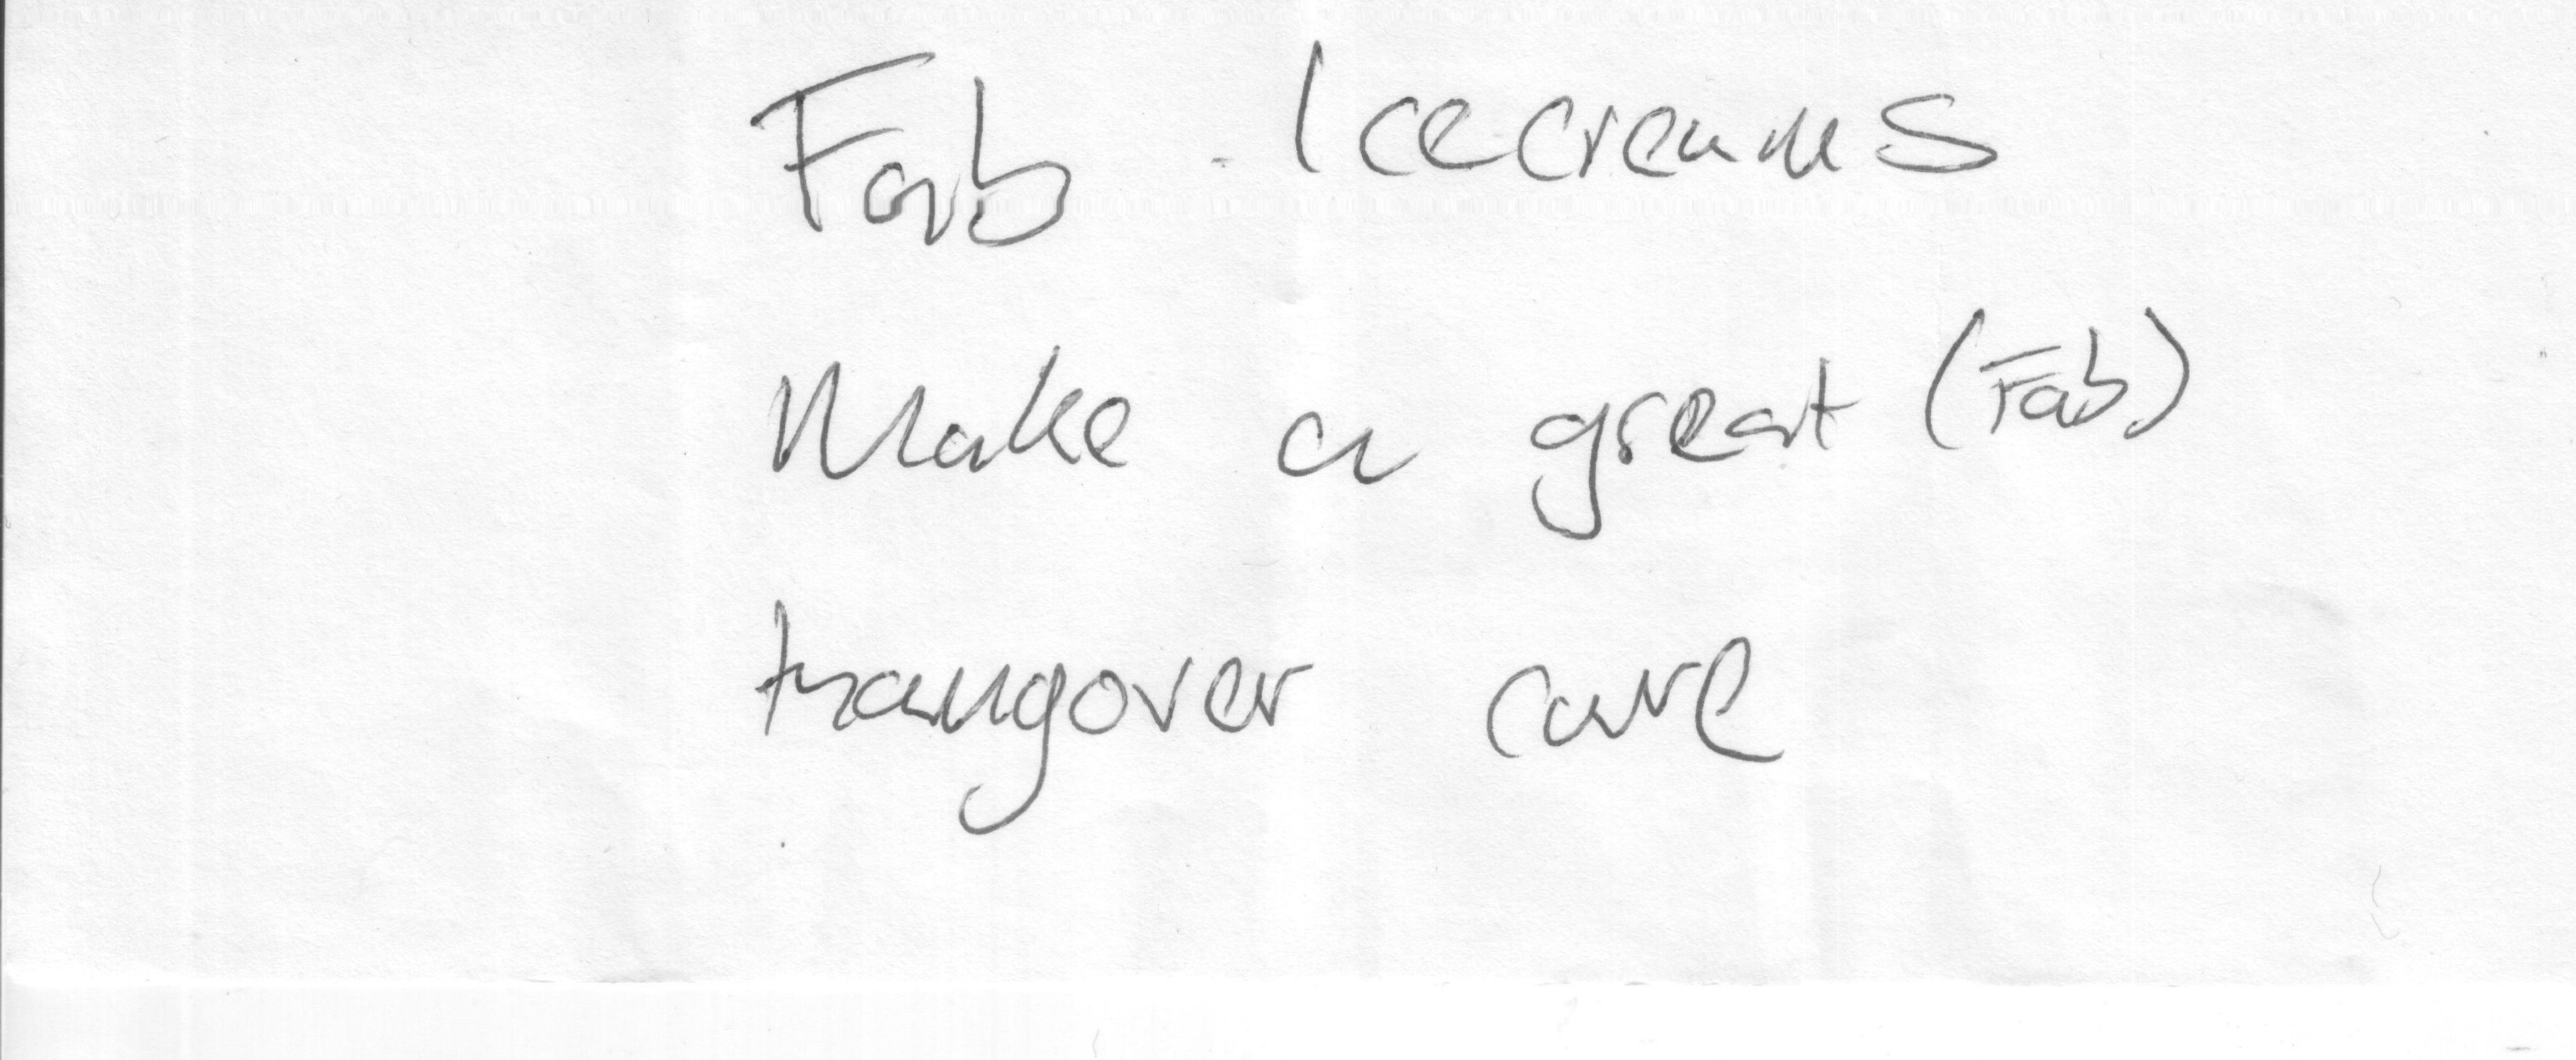 Fab Icecreams
Make a great (Fab)
hangover cure